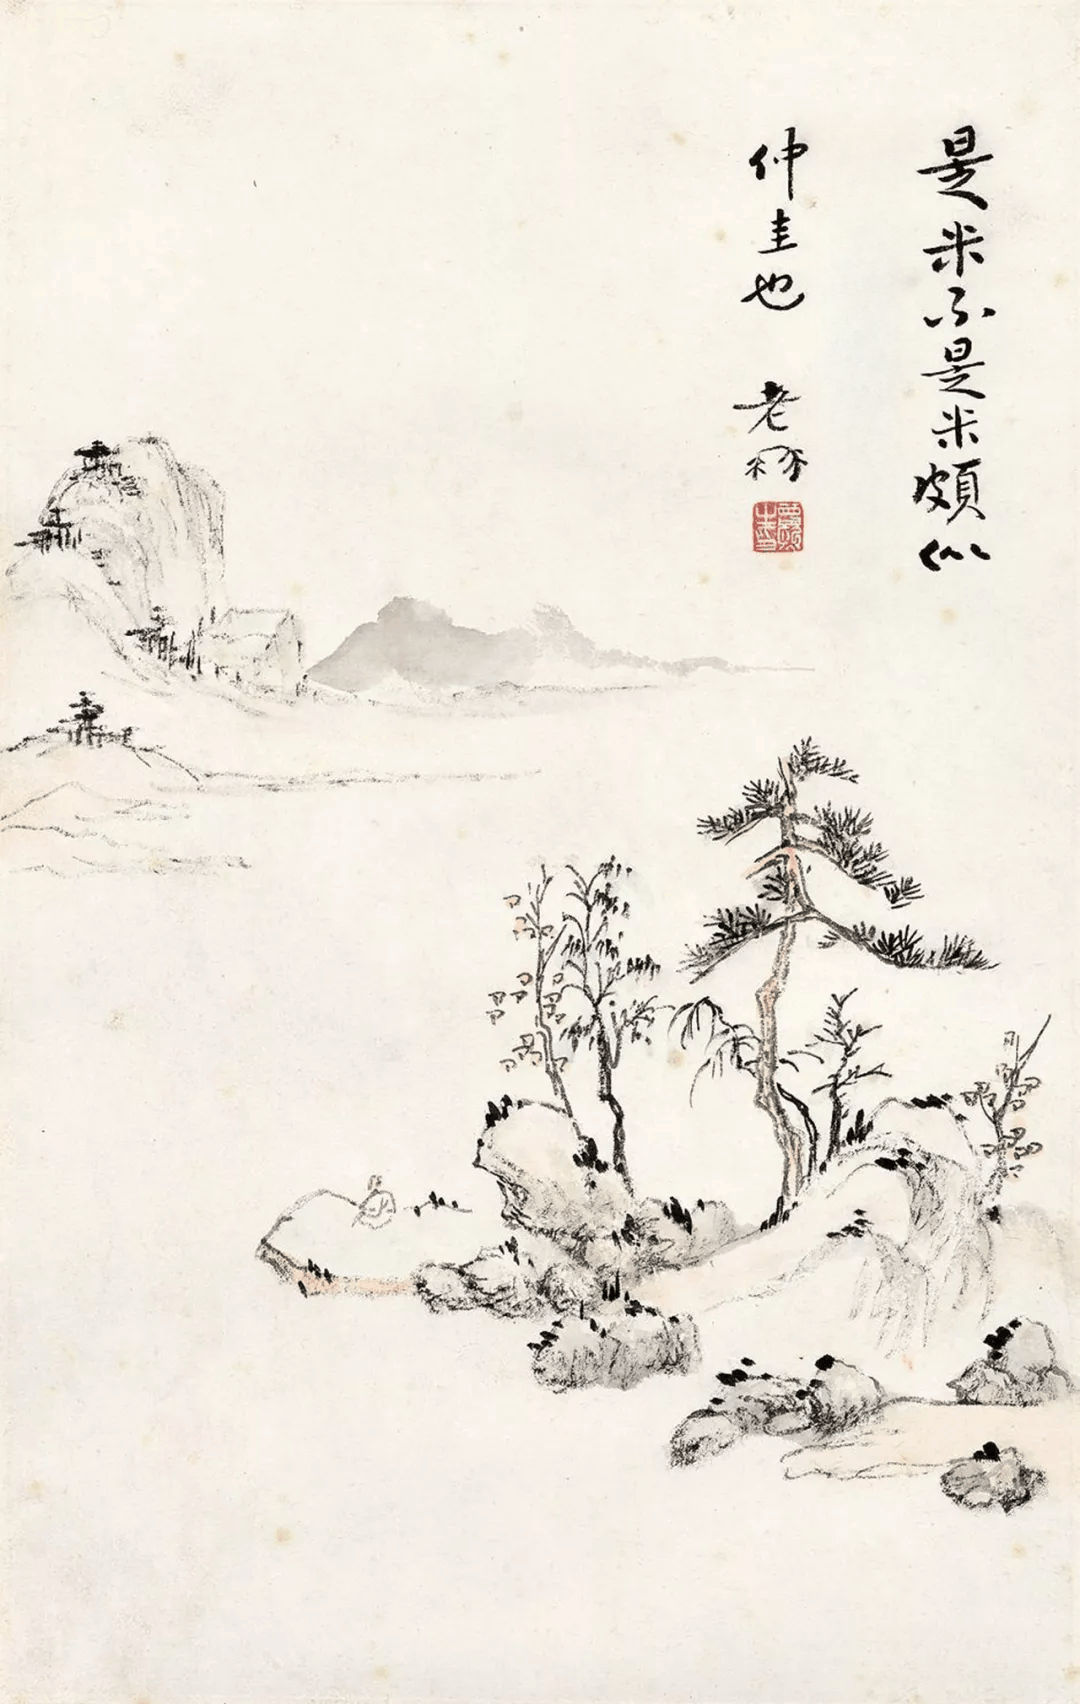 是米不是米頗似
仲圭也 老